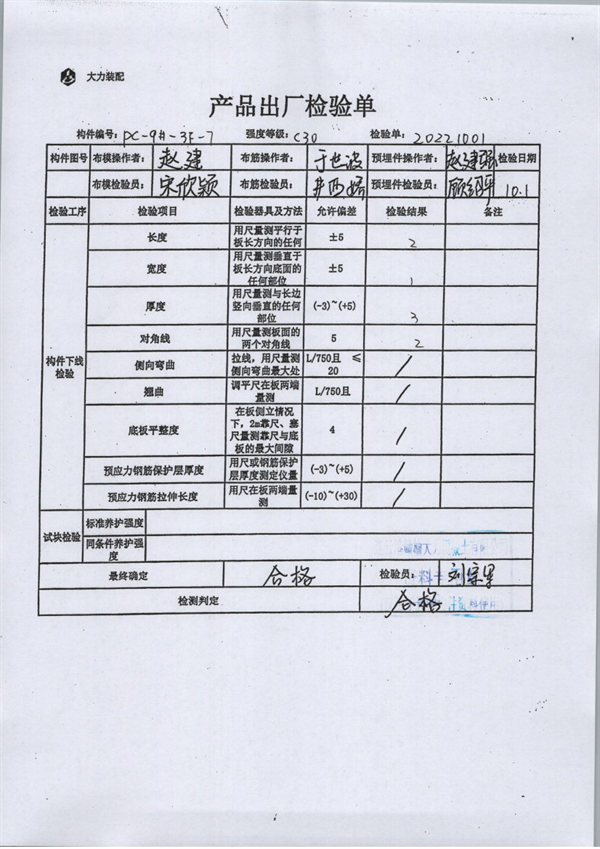 大力装配
产品出厂检验单
构件编号: PC-9#-3F-7 强度等级: C30 检验单: 20221001
构件图号 布模操作者: 赵建 布筋操作者: 于世波 预埋件操作者: 赵建强 检验日期
布模检验员: 宋欣颖 布筋检验员: 预埋件检验员: 10.1
检验工序 检验项目 检验器具及方法 允许偏差 检验结果 备注
构件下线检验
长度 用尺量测平行于板长方向的任何 ±5 2
宽度 用尺量测垂直于板长方向底面的任何部位 ±5 1
厚度 用尺量测与长边竖向垂直的任何部位 (-3)~(+5) 3
对角线 用尺量测板面的两个对角线 5 2
侧向弯曲 拉线，用尺量测侧向弯曲最大处 L/750且 ≤20 /
翘曲 调平尺在板两端量测 L/750且 /
底板平整度 在板侧立情况下，2m靠尺、塞尺量测靠尺与底板的最大间隙 4 /
预应力钢筋保护层厚度 用尺或钢筋保护层厚度测定仪量 (-3)~(+5) /
预应力钢筋拉伸长度 用尺在板两端量测 (-10)~(+30) /
试块检验 标准养护强度
同条件养护强度
最终确定 合格 检验员:
检测判定 合格